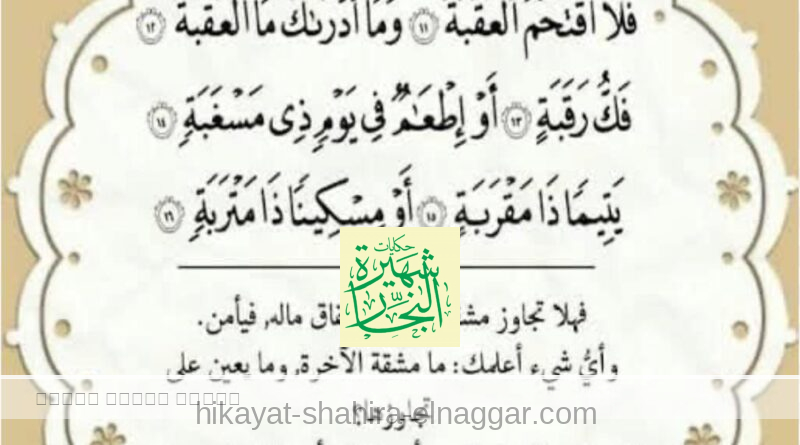 فَلَا ٱقْتَحَمَ ٱلْعَقَبَةَ ١١ وَمَآ أَدْرَىٰكَ مَا ٱلْعَقَبَةُ ١٢
فَكُّ رَقَبَةٍ ١٣ أَوْ إِطْعَٰمٌ فِى يَوْمٍ ذِى مَسْغَبَةٍ ١٤
يَتِيمًا ذَا مَقْرَبَةٍ ١٥ أَوْ مِسْكِينًا ذَا مَتْرَبَةٍ ١٦
حكايات
شهيرة
النجار
فهلا تجاوز ماله, فيأمن.
وأيُّ شيء أعلمك: ما مشقة الآخرة, وما يعين على
تجاوزها؟
hikayat-shahira-elnaggar.com